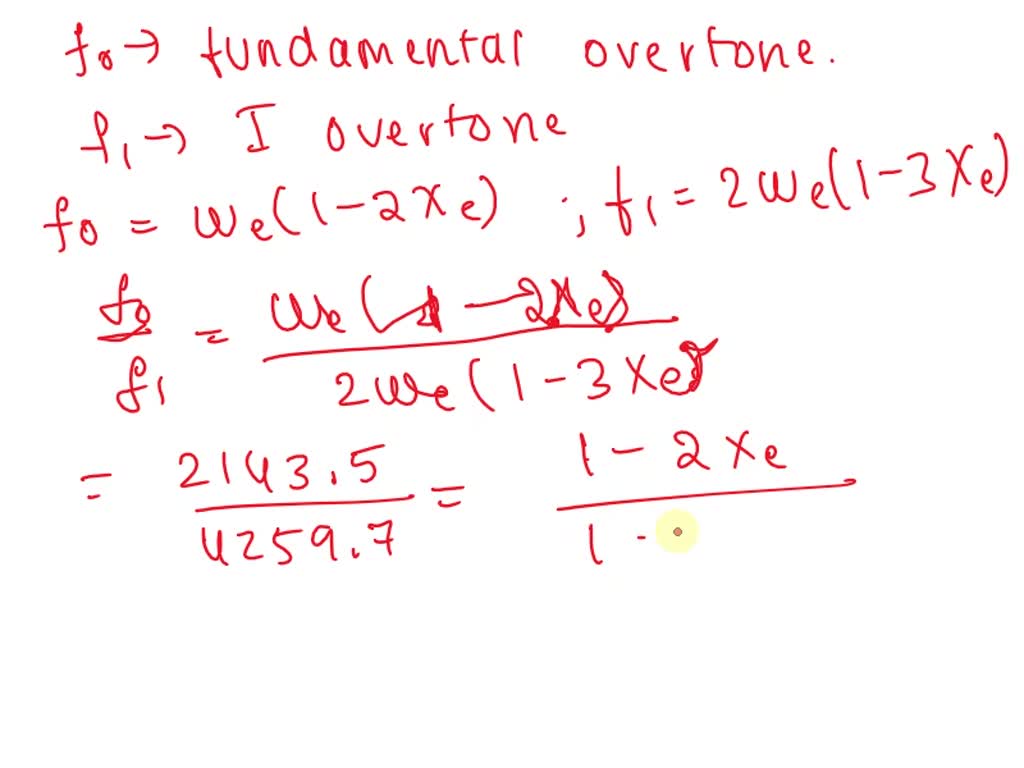 f₀ → fundamental overtone.
f₁ → I overtone
f₀ = ωe(1-2xe) ; f₁ = 2ωe(1-3xe)
f₀/f₁ = ωe(1-2xe)/2ωe(1-3xe)
= 2143.5/4259.7 = 1-2xe/1-